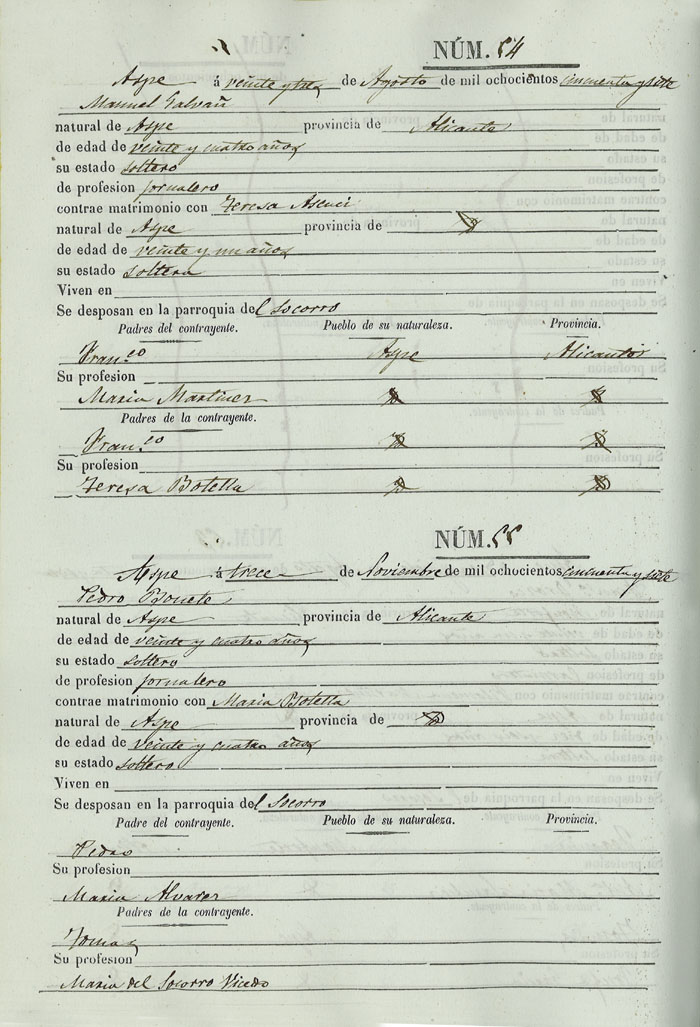 NÚM. 54
Aspe á veinte y tres de Agosto de mil ochocientos cincuenta y siete
Manuel Galvañ
natural de Aspe provincia de Alicante
de edad de veinte y cuatro años
su estado soltero
de profesion jornalero
contrae matrimonio con Teresa Asenci
natural de Aspe provincia de
de edad de veinte y un años
su estado soltera
Viven en
Se desposan en la parroquia del Socorro
Padres del contrayente. Pueblo de su naturaleza. Provincia.
Fran.co Aspe Alicante
Su profesion
Maria Martinez
Padres de la contrayente.
Fran.co
Su profesion
Teresa Botella
NÚM. 55
Aspe á trece de Noviembre de mil ochocientos cincuenta y siete
Pedro Bonete
natural de Aspe provincia de Alicante
de edad de veinte y cuatro años
su estado soltero
de profesion jornalero
contrae matrimonio con Maria Botella
natural de Aspe provincia de
de edad de veinte y cuatro años
su estado soltero
Viven en
Se desposan en la parroquia del Socorro
Padre del contrayente. Pueblo de su naturaleza. Provincia.
Pedro
Su profesion
Maria Alvarez
Padres de la contrayente.
Tomas
Su profesion
Maria del Socorro Vicedo